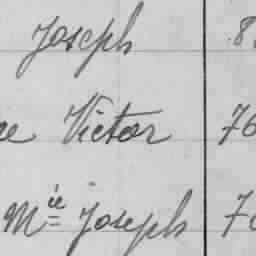 Joseph 8
Victor 76
Mie Joseph 7